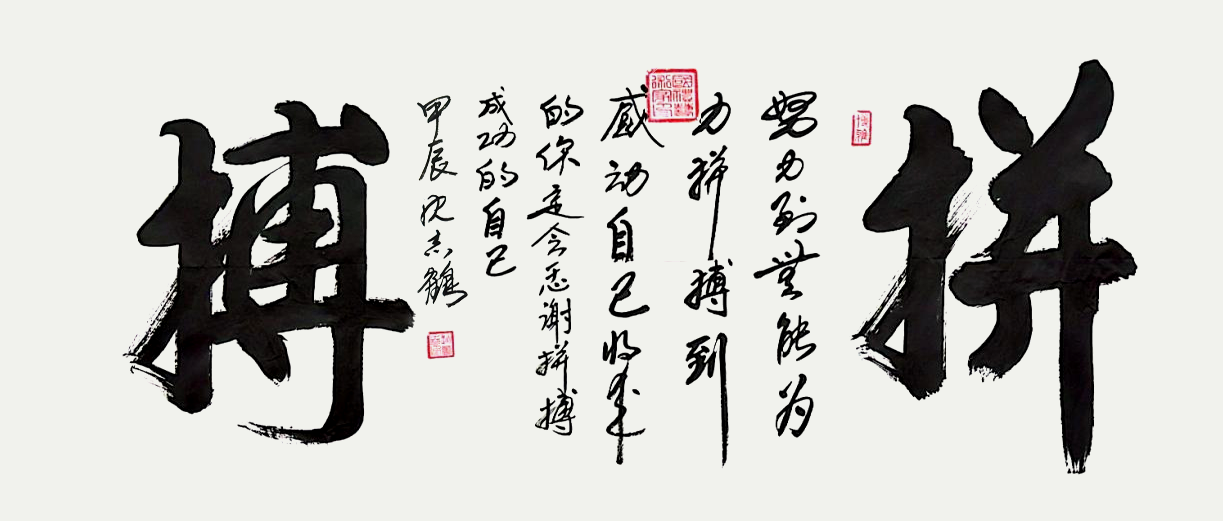 拼
努力到無能为
力拼搏到
感动自己将来
的你定会感谢拼搏
成功的自己
甲辰沈志鹤
搏